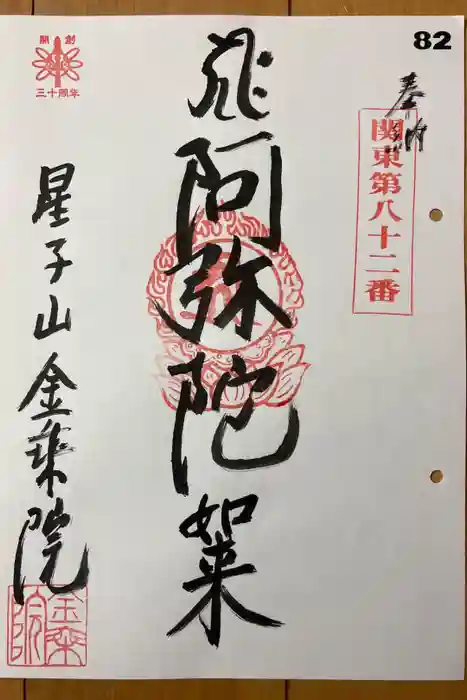 82
奉納
関東第八十二番
阿弥陀如来
開創
三十周年
星子山金乗院
金乗院